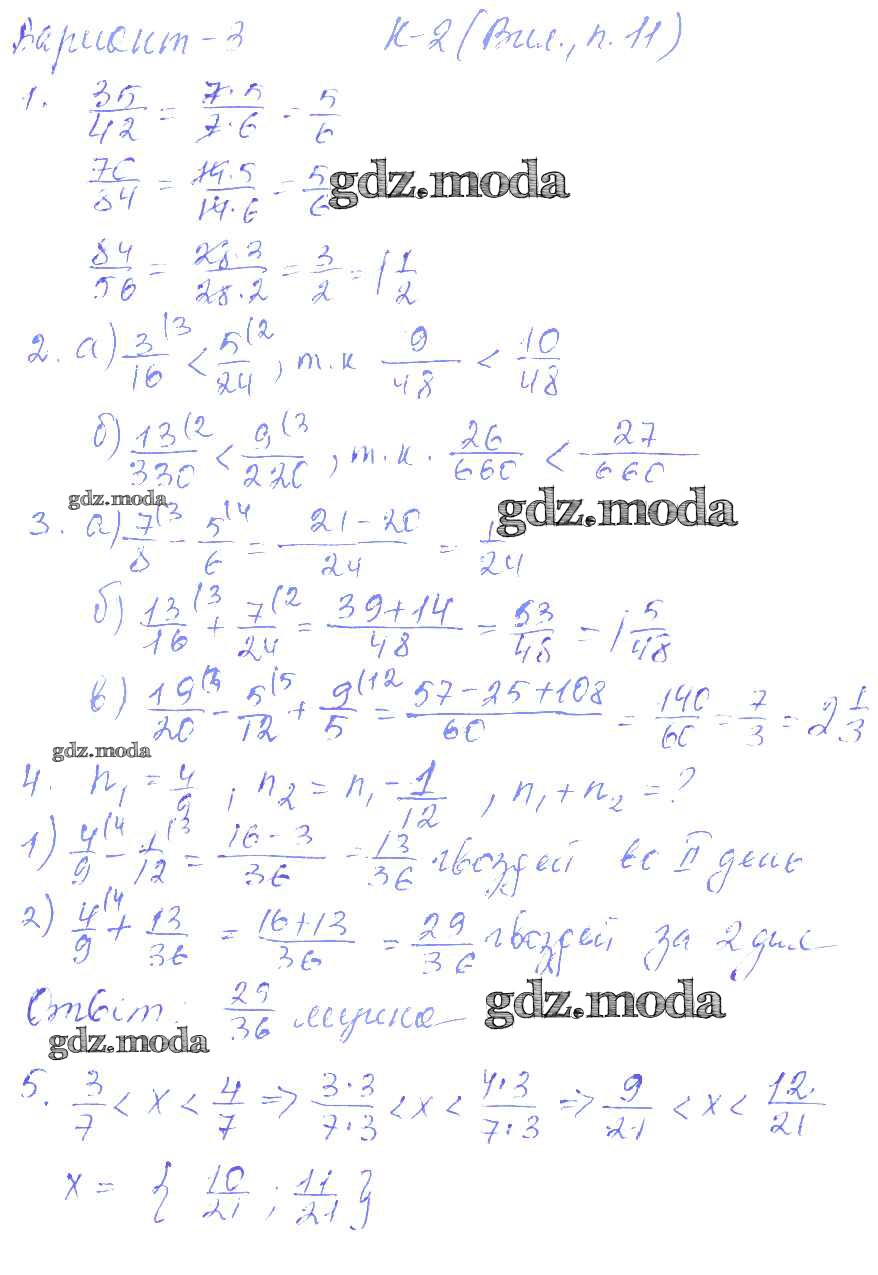 Вариант-3 К-2 (Вил., п. 11)
1. 35/42 = 7·5/7·6 = 5/6
70/84 = 14·5/14·6 = 5/6
gdz.moda
84/56 = 28·3/28·2 = 3/2 = 1 1/2
2. а) 3/16 (3 < 5/24 (2, т.к 9/48 < 10/48
б) 13/330 (2 < 9/220 (3, т.к. 26/660 < 27/660
gdz.moda gdz.moda
3. а) 7/8 (3 - 5/6 (4 = 21-20/24 = 1/24
б) 13/16 (3 + 7/24 (2 = 39+14/48 = 53/48 = 1 5/48
в) 19/20 (3 - 5/12 (5 + 9/5 (12 = 57-25+108/60 = 140/60 = 7/3 = 2 1/3
gdz.moda
4. n₁ = 4/9; n₂ = n₁ - 1/12, n₁ + n₂ = ?
1) 4/9 (4 - 1/12 (3 = 16-3/36 = 13/36 гвоздей во II день
2) 4/9 (4 + 13/36 = 16+13/36 = 29/36 гвоздей за 2 дня
Ответ: 29/36 gdz.moda
gdz.moda
5. 3/7 < x < 4/7 => 3·3/7·3 < x < 4·3/7·3 => 9/21 < x < 12/21
x = { 10/21 ; 11/21 }